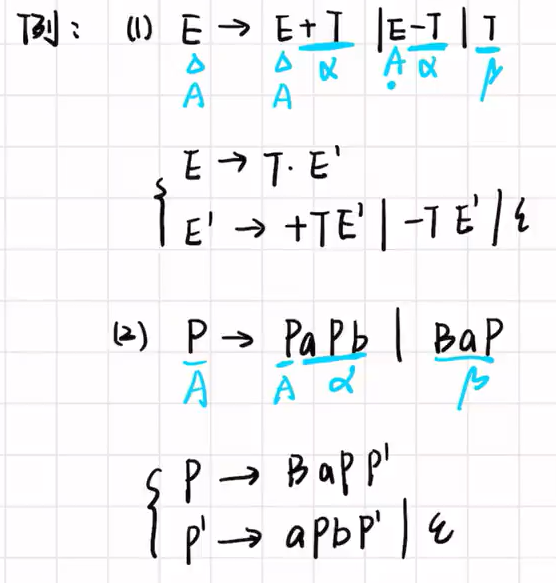 例: (1) E → E+T | E-T | T
Δ Δ α A α β
A A
E → T· E'
E' → +TE' | -TE' | ε
(2) P → PaPb | BaP
A A α β
P → BaPP'
P' → aPbP' | ε